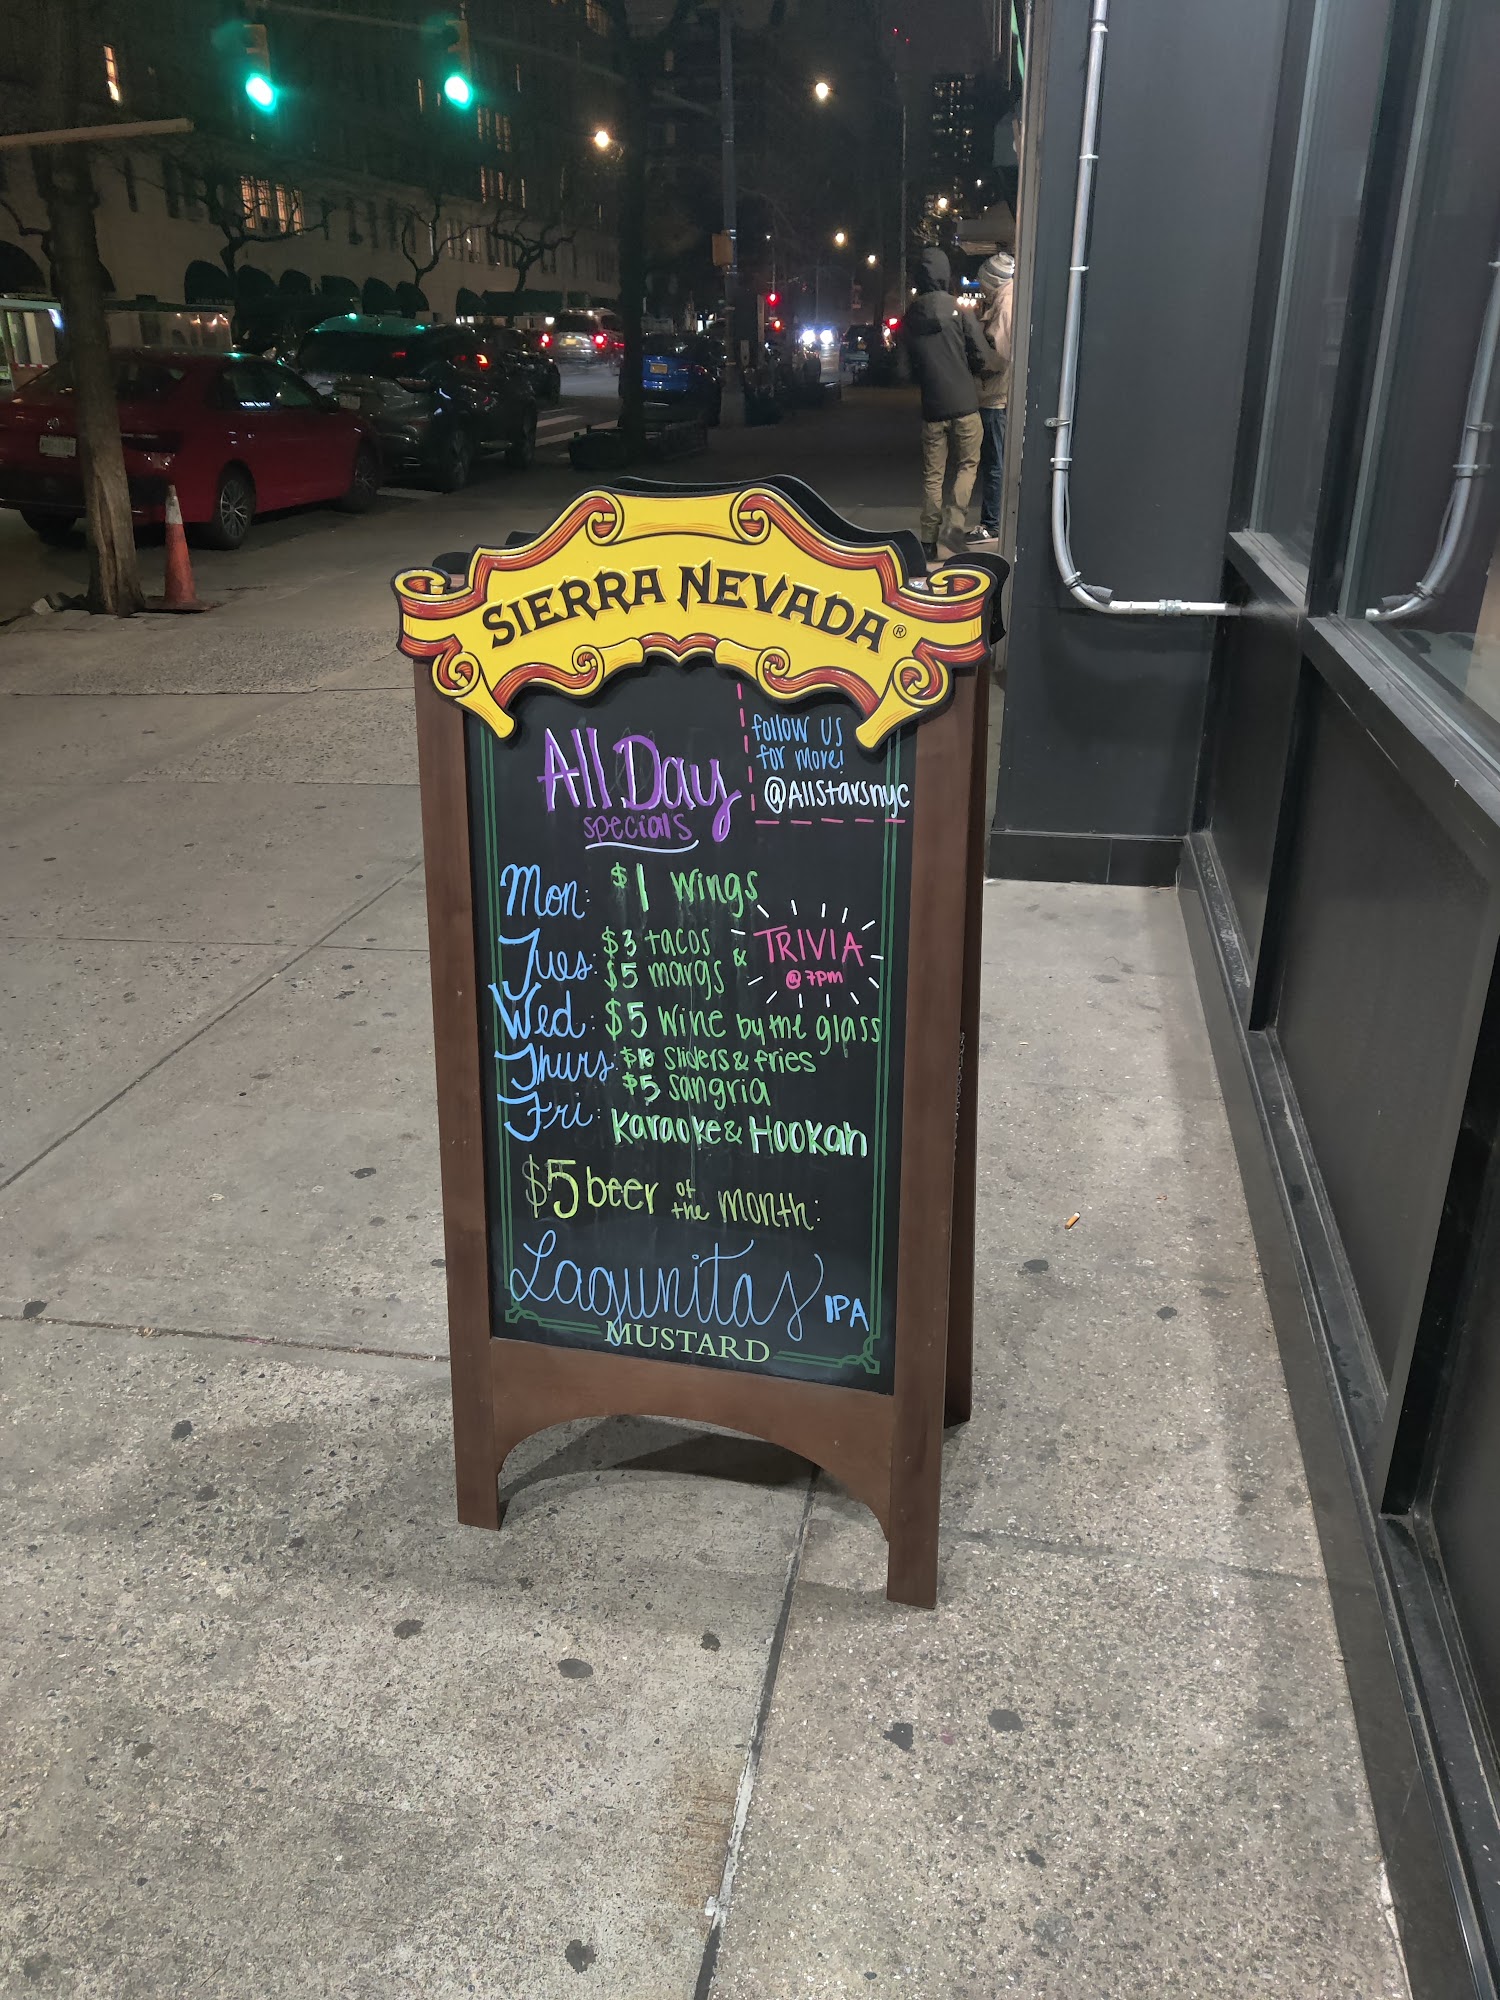 SIERRA NEVADA®
All Day
specials
follow us
for more!
@Allstarsnyc
Mon: $1 wings
Tues: $3 tacos
$5 margs
& TRIVIA
@ 7pm
Wed: $5 wine by the glass
Thurs: sliders & fries
$5 sangria
Fri: Karaoke & Hookah
$5 beer of the month:
Lagunitas IPA
MUSTARD